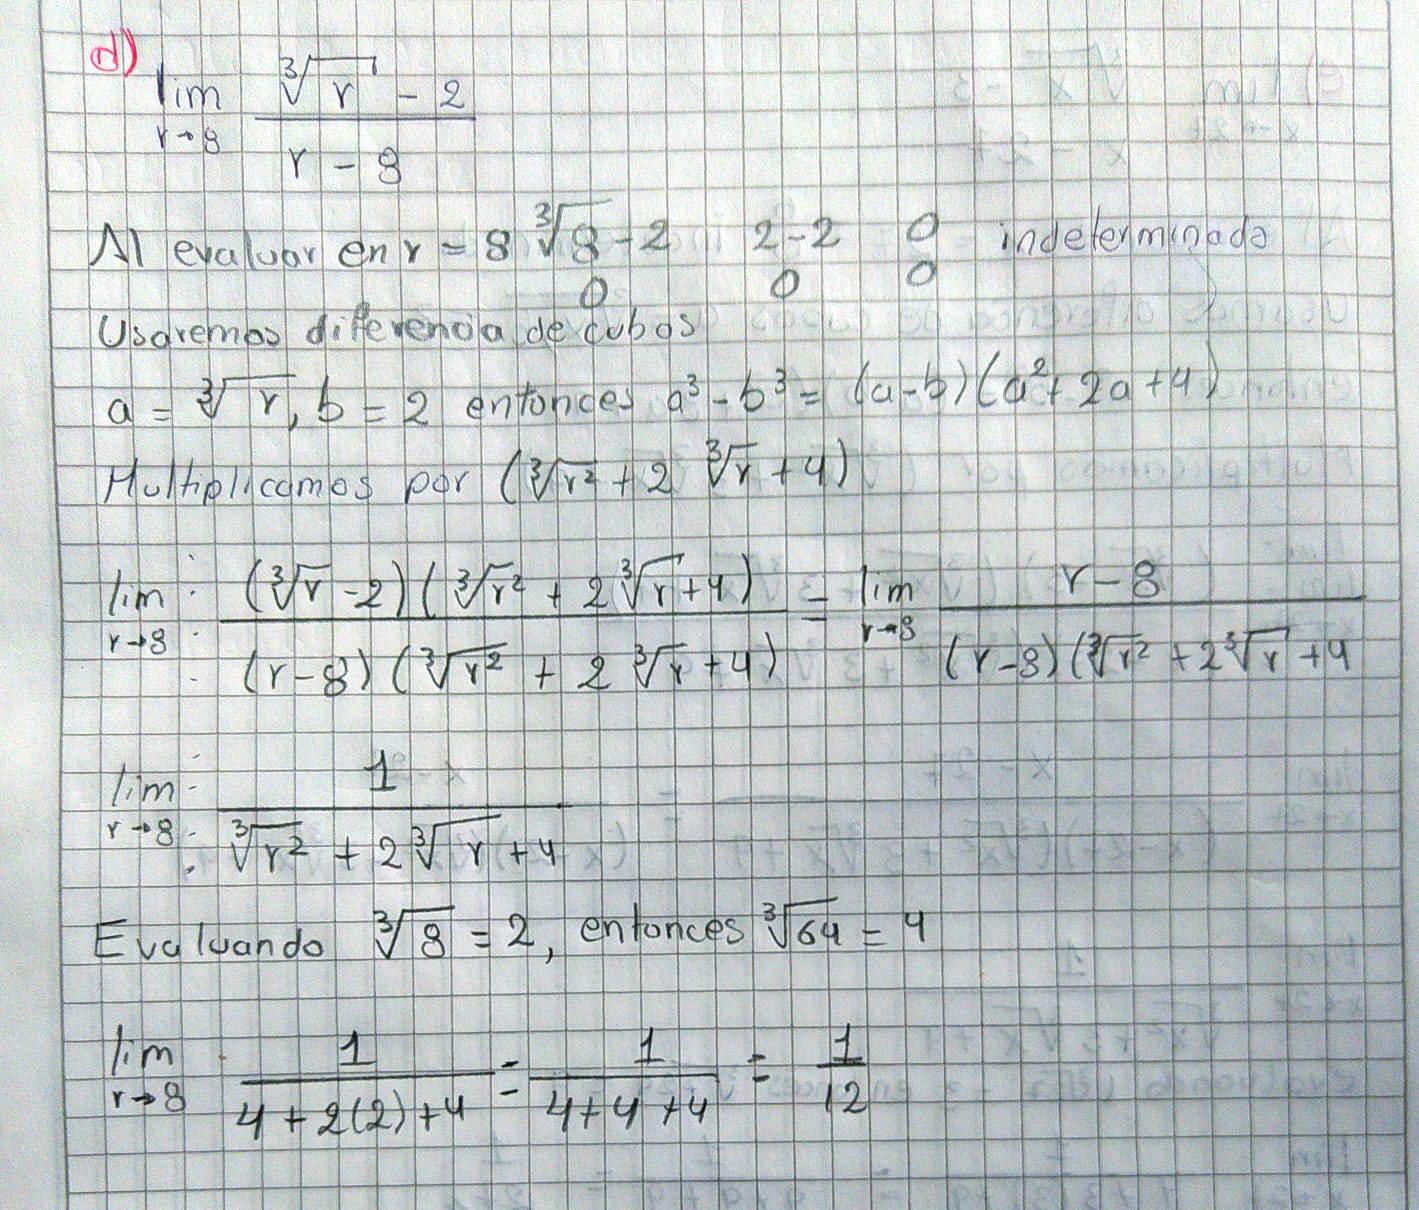 d)
lim r→8 (∛r - 2) / (r - 8)
Al evaluar en r = 8 (∛8 - 2)/0 (2-2)/0 0/0 indeterminado
Usaremos diferencia de cubos
a = ∛r, b = 2 entonces a³ - b³ = (a-b)(a² + 2a + 4)
Multiplicamos por (∛r² + 2 ∛r + 4)
lim r→8 (∛r - 2)(∛r² + 2∛r + 4) / (r-8)(∛r² + 2∛r + 4) = lim r→8 r-8 / (r-8)(∛r² + 2∛r + 4
lim r→8 1 / ∛r² + 2∛r + 4
Evaluando ∛8 = 2, entonces ∛64 = 4
lim r→8 1 / 4 + 2(2) + 4 = 1 / 4+4+4 = 1/12